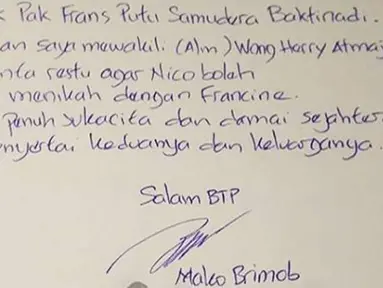 Pak Frans Putu Samudera Baktinadi.
an saya mewakili (Alm) Wong Harry Atmaj
nta restu agar Nico boleh
menikah dengan Francine.
Penuh sukacita dan damai sejahter
nyertai keduanya dan keluarganya.
Salam BTP
Mako Brimob